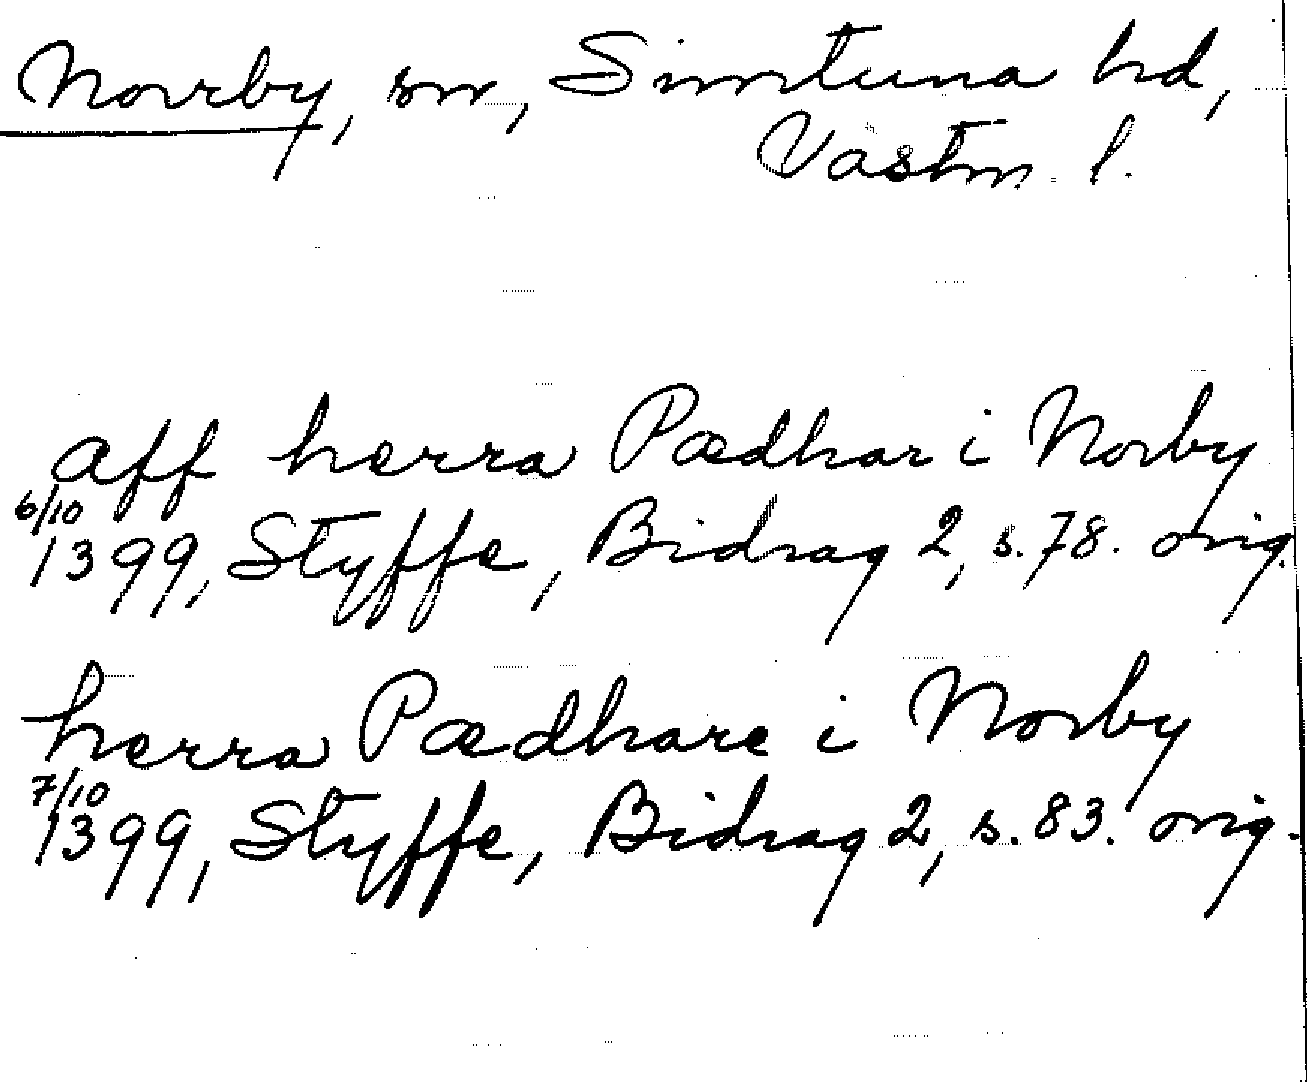 Norrby, sn, Simtuna hd,
Västm. l.
aff herra Pædhar i Norby
6/10
1399, Styffe, Bidrag 2, s. 78. orig.
herra Pædhare i Norby
7/10
1399, Styffe, Bidrag 2, s. 83. orig.